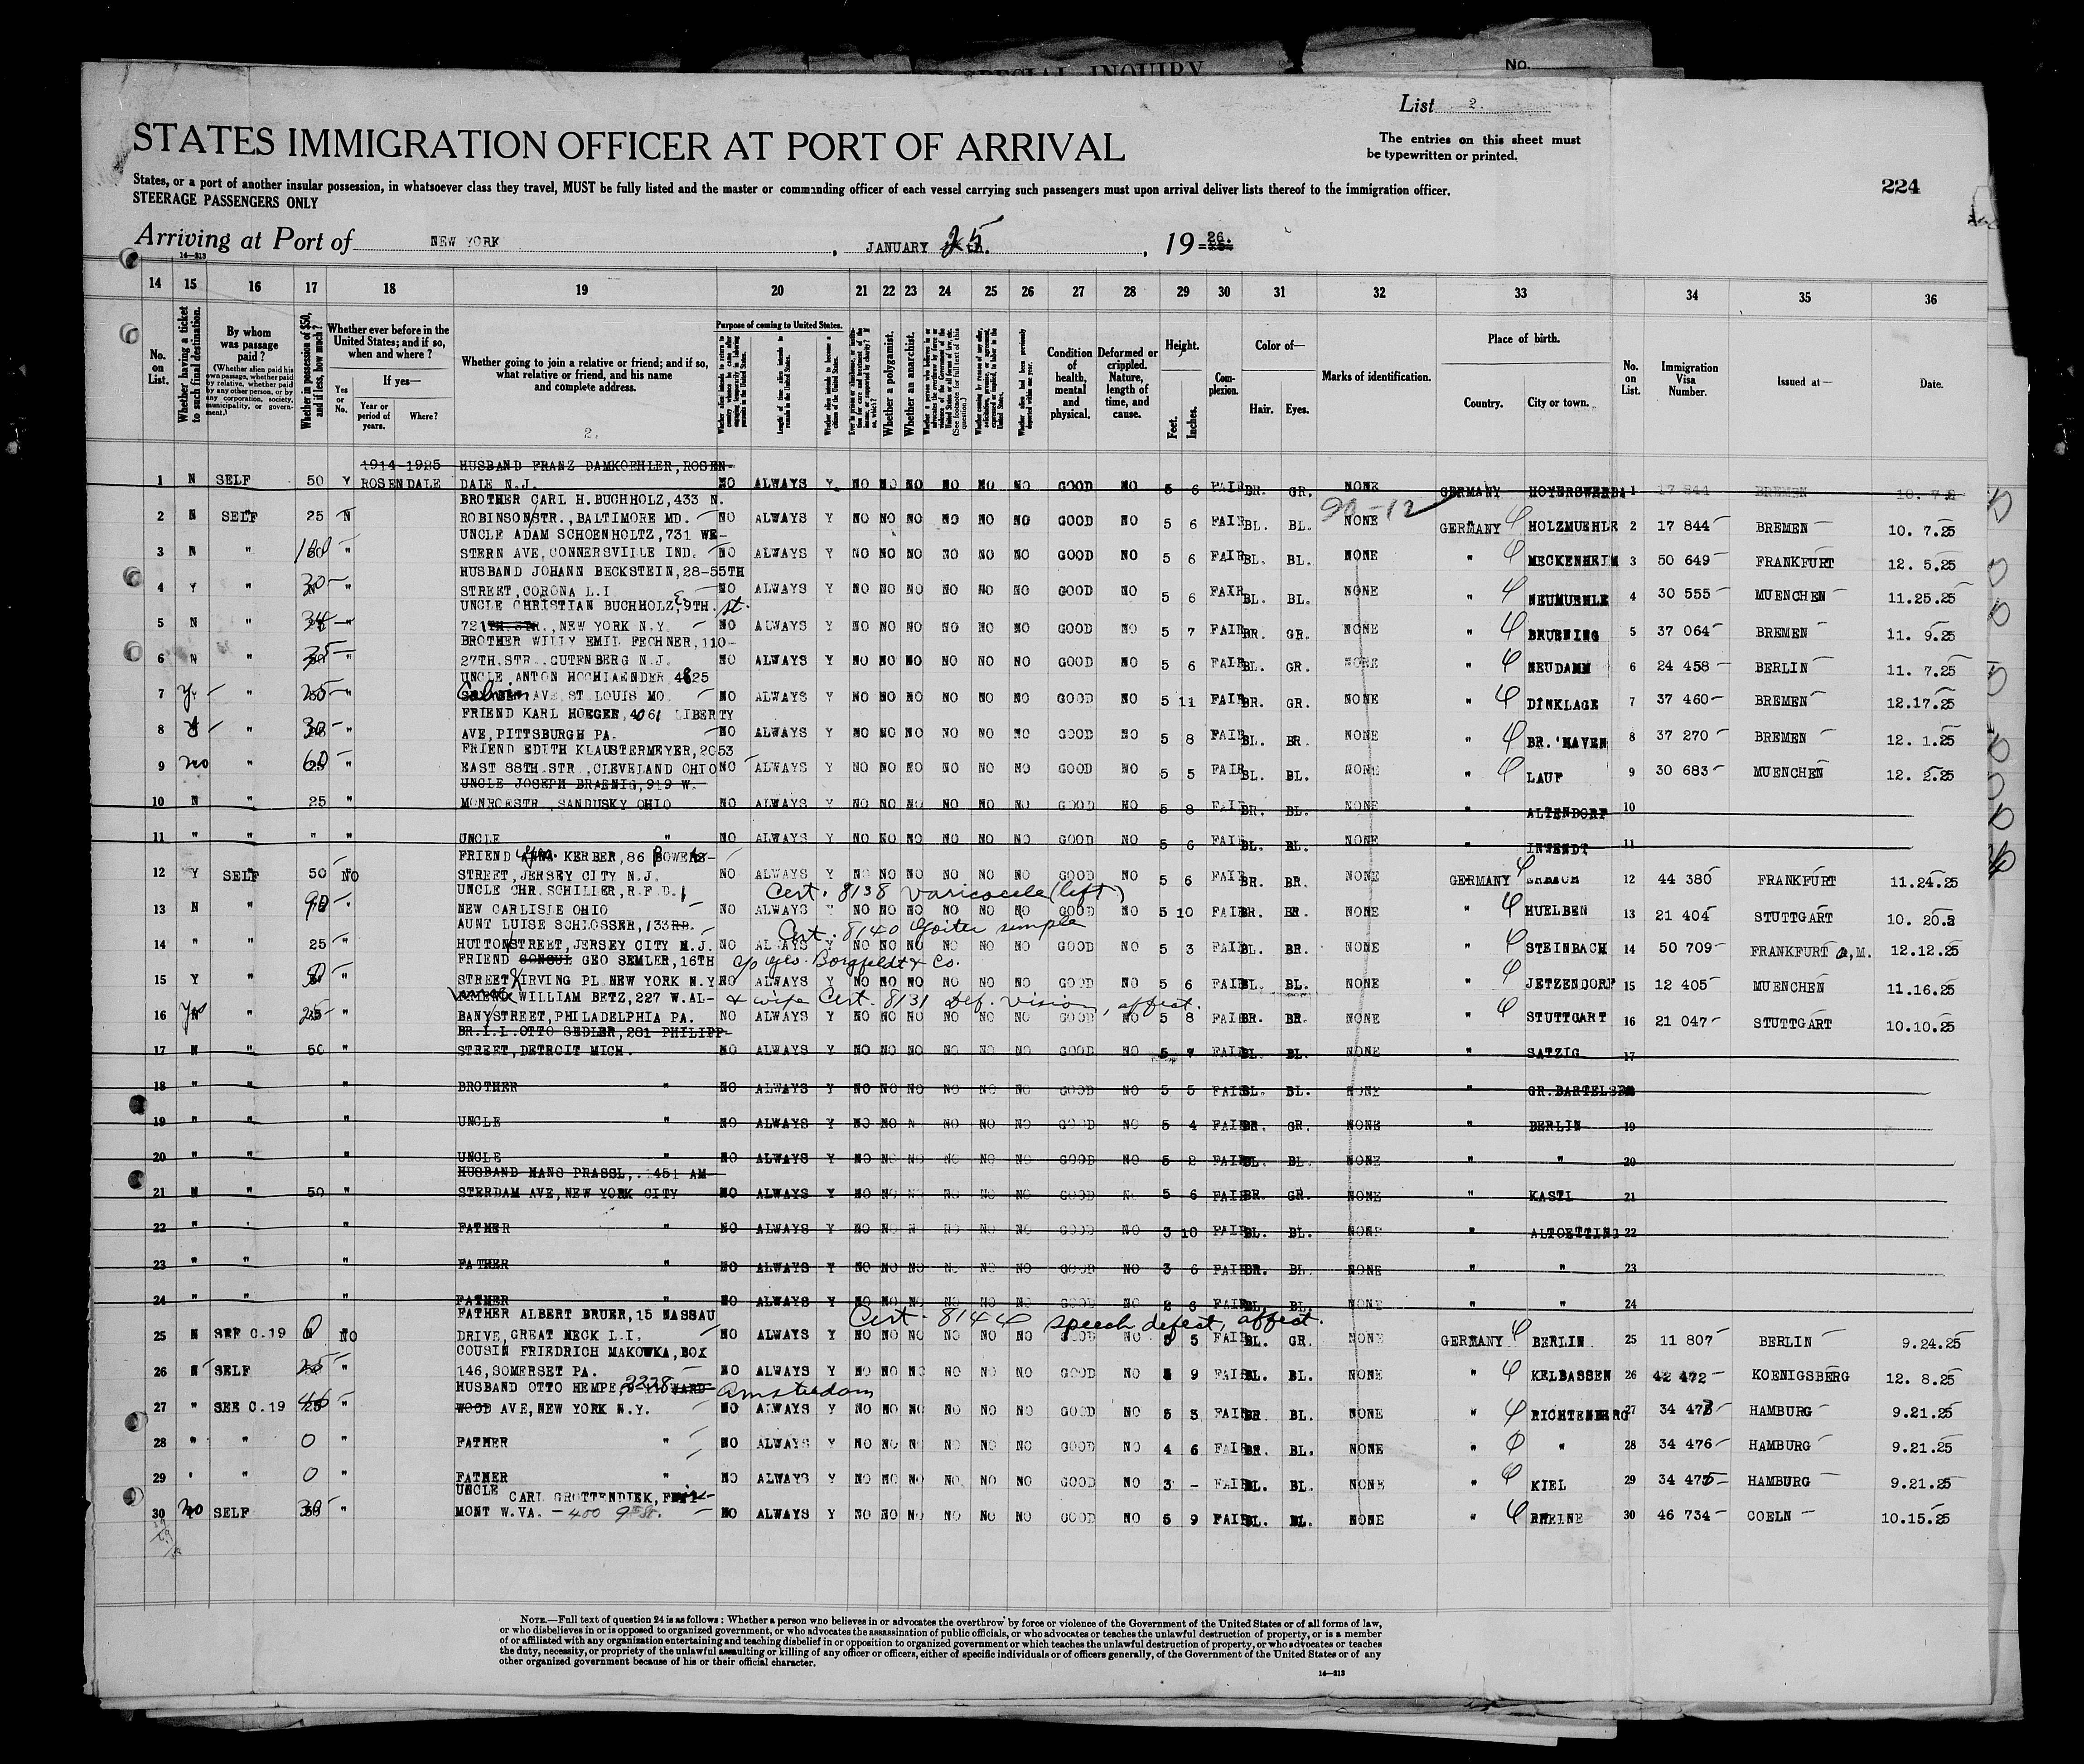 SPECIAL INQUIRY
No.
List 2.
The entries on this sheet must
be typewritten or printed.
STATES IMMIGRATION OFFICER AT PORT OF ARRIVAL
States, or a port of another insular possession, in whatsoever class they travel, MUST be fully listed and the master or commanding officer of each vessel carrying such passengers must upon arrival deliver lists thereof to the immigration officer.
STEERAGE PASSENGERS ONLY
224
Arriving at Port of NEW YORK, JANUARY 25 th., 19 26.
14—213
14 15 16 17 18 19 20 21 22 23 24 25 26 27 28 29 30 31 32 33 34 35 36
No. on List.
Whether having a ticket to such final destination.
By whom was passage paid?
(Whether alien paid his own passage, whether paid by relative, whether paid by any other person, or by any corporation, society, municipality, or government.)
Whether in possession of $50, and if less, how much?
Whether ever before in the United States; and if so, when and where?
Yes or No.
If yes—
Year or period of years.
Where?
Whether going to join a relative or friend; and if so, what relative or friend, and his name and complete address.
2.
Purpose of coming to United States.
Length of time alien intends to remain in the United States.
Whether a polygamist.
Whether an anarchist.
(See footnote for full text of this question.)
Condition of health, mental and physical.
Deformed or crippled. Nature, length of time, and cause.
Height.
Feet. Inches.
Complexion.
Color of—
Hair. Eyes.
Marks of identification.
Place of birth.
Country. City or town.
No. on List.
Immigration Visa Number.
Issued at—
Date.
1914-1925 HUSBAND FRANZ DAMKOEHLER, ROSEN-
1 N SELF 50 Y ROSENDALE DALE N.J. NO ALWAYS Y NO NO NO NO NO NO GOOD NO 5 6 FAIR BR. GR. NONE GERMANY HOYERSWERDA 1 17 844 BREMEN
BROTHER CARL H.BUCHHOLZ,433 N.
90-12
2 N SELF 25 N ROBINSONSTR.,BALTIMORE MD. NO ALWAYS Y NO NO NO NO NO NO GOOD NO 5 6 FAIR BL. BL. NONE GERMANY HOLZMUEHLE 2 17 844 BREMEN 10. 7.25
UNCLE ADAM SCHOENHOLTZ,731 WE-
3 N " " STERN AVE,CONNERSVILLE IND. NO ALWAYS Y NO NO NO NO NO NO GOOD NO 5 6 FAIR BL. BL. NONE " MECKENHEIM 3 50 649 FRANKFURT 12. 5.25
HUSBAND JOHANN BECKSTEIN,28-55TH
4 Y " 30 " STREET,CORONA L.I NO ALWAYS Y NO NO NO NO NO NO GOOD NO 5 6 FAIR BL. BL. NONE " NEUMUEHLE 4 30 555 MUENCHEN 11.25.25
UNCLE CHRISTIAN BUCHHOLZ, E 9TH. st.
5 N " " 721 TH.STR.,NEW YORK N.Y. NO ALWAYS Y NO NO NO NO NO NO GOOD NO 5 7 FAIR BR. GR. NONE " BRUENING 5 37 064 BREMEN 11. 9.25
BROTHER WILLY EMIL FECHNER,110-
6 N " " 27TH.STR..GUTENBERG N.J. NO ALWAYS Y NO NO NO NO NO NO GOOD NO 5 6 FAIR BL. GR. NONE " NEUDAMM 6 24 458 BERLIN 11. 7.25
UNCLE ANTON HOCHLAENDER 4825
7 " 25 " AVE ST LOUIS MO. NO ALWAYS Y NO NO NO NO NO NO GOOD NO 5 11 FAIR BR. GR. NONE " DINKLAGE 7 37 460 BREMEN 12.17.25
FRIEND KARL HOEGER,4061 LIBERTY
8 " 30 " AVE,PITTSBURGH PA. NO ALWAYS Y NO NO NO NO NO NO GOOD NO 5 8 FAIR BL. BR. NONE " BR.'HAVEN 8 37 270 BREMEN 12. 1.25
FRIEND EDITH KLAUSTERMEYER,2053
9 no " 60 " EAST 88TH.STR.,CLEVELAND OHIO NO ALWAYS Y NO NO NO NO NO NO GOOD NO 5 5 FAIR BL. BL. NONE " LAUF 9 30 683 MUENCHEN 12. 2.25
UNCLE JOSEPH BRAENIG,919 W.
10 N " 25 " MONROESTR.,SANDUSKY OHIO NO ALWAYS Y NO NO NO NO NO NO GOOD NO 5 8 FAIR BR. BL. NONE " ALTENDORF 10
11 " " " " UNCLE " NO ALWAYS Y NO NO NO NO NO NO GOOD NO 5 6 FAIR BL. BL. NONE " 11
FRIEND KERBER,86 BOWERS-
12 Y SELF 50 NO STREET,JERSEY CITY N.J. NO ALWAYS Y NO NO NO NO NO NO GOOD NO 5 6 FAIR BR. BR. NONE GERMANY 12 44 380 FRANKFURT 11.24.25
UNCLE CHR.SCHILLER,R.F.D.1 Cert. 8138 Varicocele (left)
13 N " 90 NEW CARLISLE OHIO NO ALWAYS Y NO NO NO NO NO NO GOOD NO 5 10 FAIR BR. BR. NONE " HUELBEN 13 21 404 STUTTGART 10. 20.2
AUNT LUISE SCHLOSSER,133RD. Cert. 8140 Goiter simple
14 " " 25 " HUTTON STREET,JERSEY CITY N.J. NO ALWAYS Y NO NO NO NO NO NO GOOD NO 5 3 FAIR BL. BR. NONE " STEINBACH 14 50 709 FRANKFURT a,M. 12.12.25
FRIEND CONSUL GEO SEMLER,16TH c/o Geo. Borgfeldt & Co.
15 Y " " STREET & IRVING PL NEW YORK N.Y NO ALWAYS Y NO NO NO NO NO NO GOOD NO 5 6 FAIR BL. BL. NONE " JETZENDORF 15 12 405 MUENCHEN 11.16.25
FRIEND WILLIAM BETZ,227 W.AL- & wife Cert. 8131 Def. Vision, affect.
16 " 25 " BANYSTREET,PHILADELPHIA PA. NO ALWAYS Y NO NO NO NO NO NO GOOD NO 5 8 FAIR BR. BR. NONE " STUTTGART 16 21 047 STUTTGART 10.10.25
BR.I.L.OTTO SEDLER,281 PHILIPP-
17 N " 50 " STREET,DETROIT MICH. NO ALWAYS Y NO NO NO NO NO NO GOOD NO 5 7 FAIR BL. BL. NONE " SATZIG 17
18 " " " BROTHER " NO ALWAYS Y NO NO NO NO NO NO GOOD NO 5 5 FAIR BL. BL. NONE " GR.BARTELSEE
19 " " " UNCLE " NO ALWAYS Y NO NO N NO NO NO GOOD NO 5 4 FAIR BR. GR. NONE " BERLIN 19
20 " " " UNCLE " NO ALWAYS Y NO NO NO NO NO NO GOOD NO 5 2 FAIR BL. BL. NONE " " 20
HUSBAND HANS PRASSL,.1451 AM-
21 N " 50 " STERDAM AVE,NEW YORK CITY NO ALWAYS Y NO NO NO NO NO NO GOOD NO 5 6 FAIR BR. GR. NONE " KASTL 21
22 " ' " FATHER " NO ALWAYS Y NO NO N NO NO NO GOOD NO 3 10 FAIR BL. BL. NONE " ALTOETTING 22
23 " " " FATHER " NO ALWAYS Y NO NO NO NO NO NO GOOD NO 3 6 FAIR BR. BL. NONE " " 23
24 " " " FATHER " NO ALWAYS Y NO NO NO NO NO NO GOOD NO 2 6 FAIR BL. BL. NONE " " 24
FATHER ALBERT BRUER,15 NASSAU Cert. 8144 speech defect, affect.
25 N SEE C.19 0 NO DRIVE,GREAT NECK L.I. NO ALWAYS Y NO NO NO NO NO NO GOOD NO 5 5 FAIR BL. GR. NONE GERMANY BERLIN 25 11 807 BERLIN 9.24.25
COUSIN FRIEDRICH MAKOWKA,BOX
26 N SELF 25 " 146,SOMERSET PA. NO ALWAYS Y NO NO NO NO NO NO GOOD NO 5 9 FAIR BL. BL. NONE " KELBASSEN 26 42 472 KOENIGSBERG 12. 8.25
HUSBAND OTTO HEMPE, 2278 WARD- Amsterdam
27 " SEE C.19 " WOOD AVE,NEW YORK N.Y. NO ALWAYS Y NO NO NO NO NO NO GOOD NO 5 3 FAIR BR BL. NONE " RICHTENBERG 27 34 47 HAMBURG 9.21.25
28 " " 0 " FATHER " NO ALWAYS Y NO NO NO NO NO NO GOOD NO 4 6 FAIR BR. BL. NONE " " 28 34 476 HAMBURG 9.21.25
29 ' " 0 " FATHER " NO ALWAYS Y NO NO NO NO NO NO GOOD NO 3 - FAIR BL. BL. NONE " KIEL 29 34 475 HAMBURG 9.21.25
UNCLE CARL GROTTENDIEK,
30 no SELF 30 " MONT W.VA. - 400 9th St. NO ALWAYS Y NO NO NO NO NO NO GOOD NO 5 9 FAIR BL. BL. NONE " RHEINE 30 46 734 COELN 10.15.25
NOTE.—Full text of question 24 is as follows: Whether a person who believes in or advocates the overthrow by force or violence of the Government of the United States or of all forms of law,
or who disbelieves in or is opposed to organized government, or who advocates the assassination of public officials, or who advocates or teaches the unlawful destruction of property, or is a member
of or affiliated with any organization entertaining and teaching disbelief in or opposition to organized government or which teaches the unlawful destruction of property, or who advocates or teaches
the duty, necessity, or propriety of the unlawful assaulting or killing of any officer or officers, either of specific individuals or of officers generally, of the Government of the United States or of any
other organized government because of his or their official character.
14—213